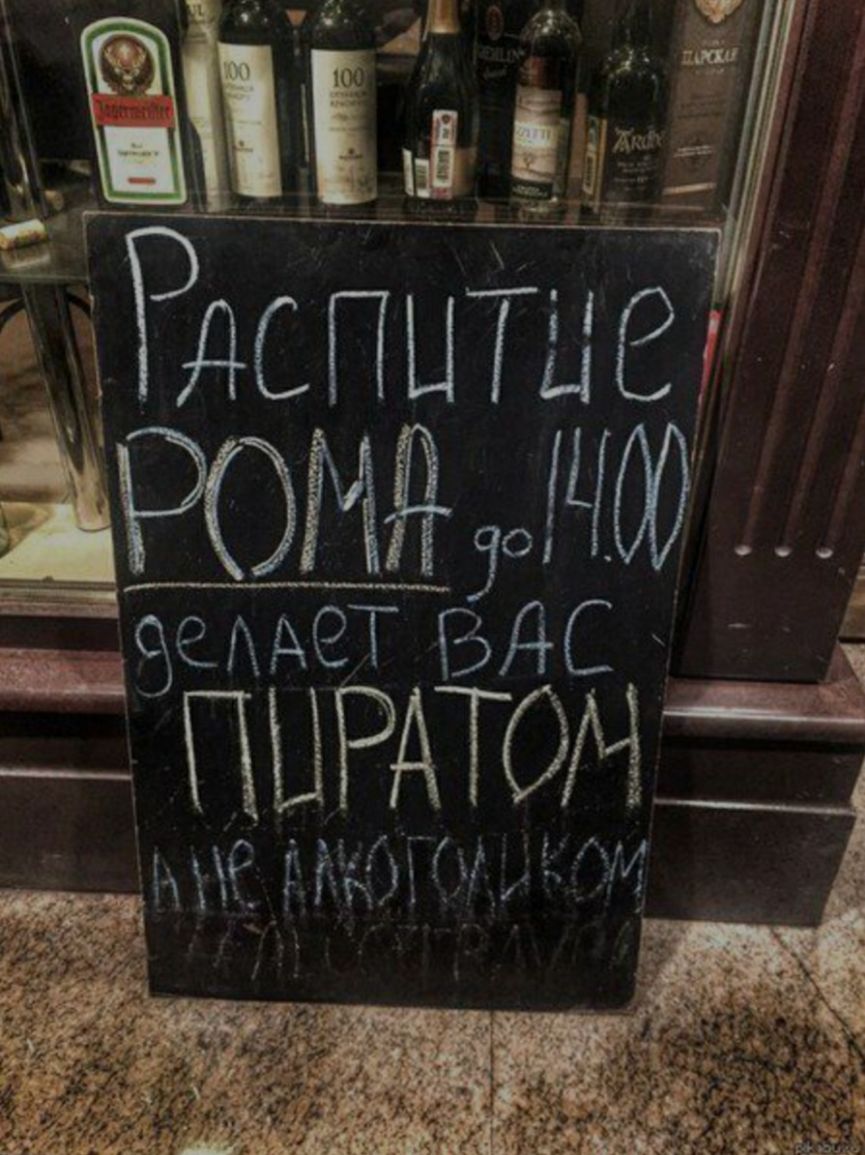 Jägermeister
100
100
ЦАРСКАЯ
Распитие
РОМА до 14.00
делает ВАС
ПИРАТОМ
А не АЛКОГОЛИКОМ